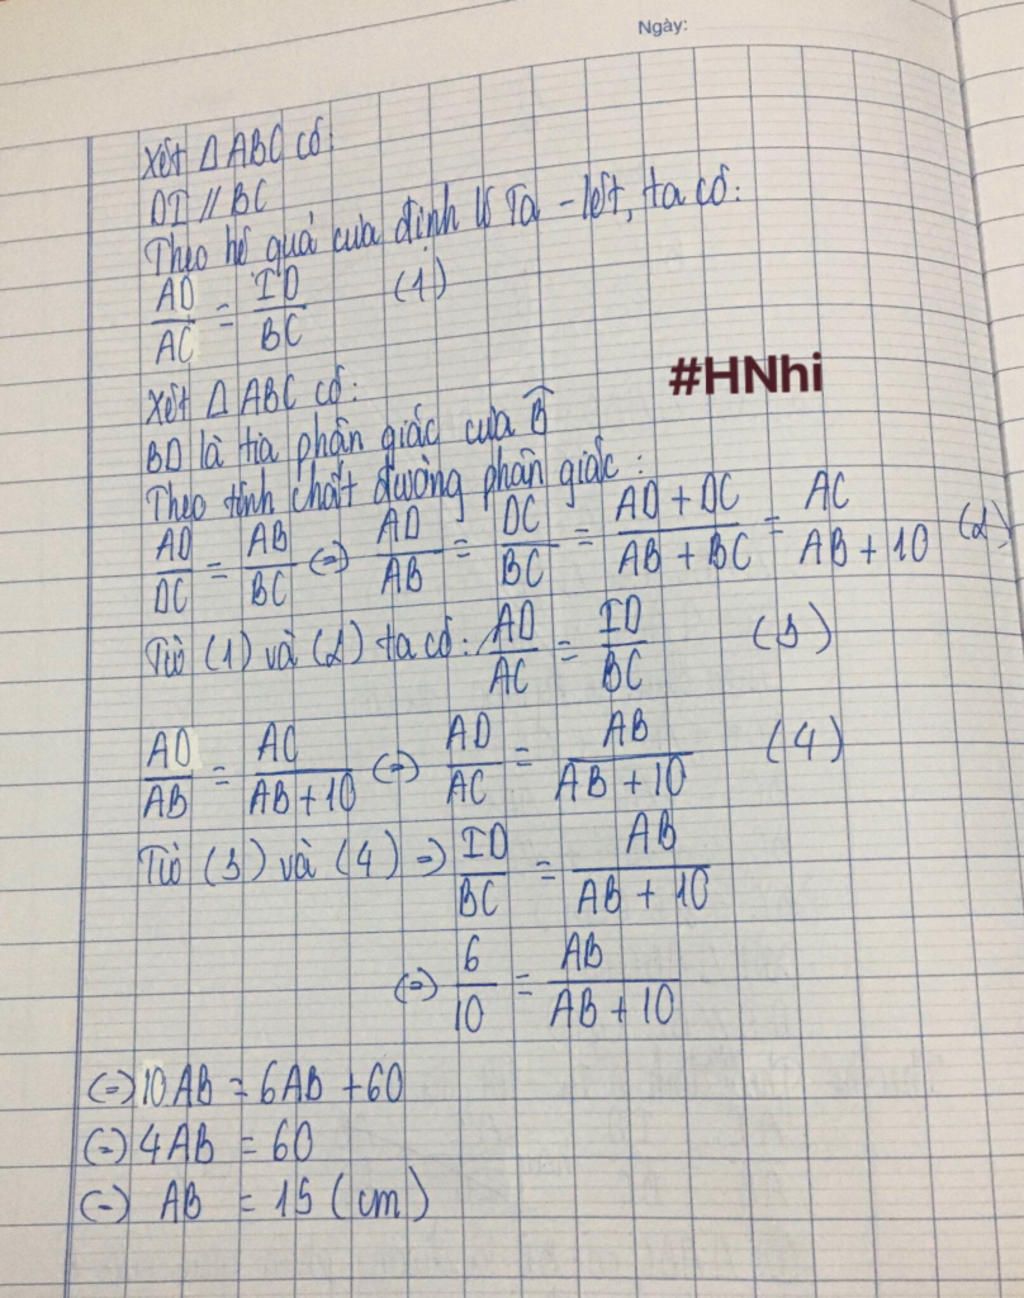 Ngày:
Xét Δ ABC có:
DI // BC
Theo hệ quả của định lí Ta - lét, ta có:
AD/AC = ID/BC (1)
#HNhi
Xét Δ ABC có:
BD là tia phân giác của B̂
Theo tính chất đường phân giác:
AD/DC = AB/BC (=) AD/AB = DC/BC = AD + DC/AB + BC = AC/AB + 10 (2)
Từ (1) và (2) ta có: AD/AC = ID/BC (3)
AD/AB = AC/AB + 10 (=) AD/AC = AB/AB + 10 (4)
Từ (3) và (4) =) ID/BC = AB/AB + 10
(=) 6/10 = AB/AB + 10
(=) 10AB = 6AB + 60
(=) 4AB = 60
(=) AB = 15 (cm)